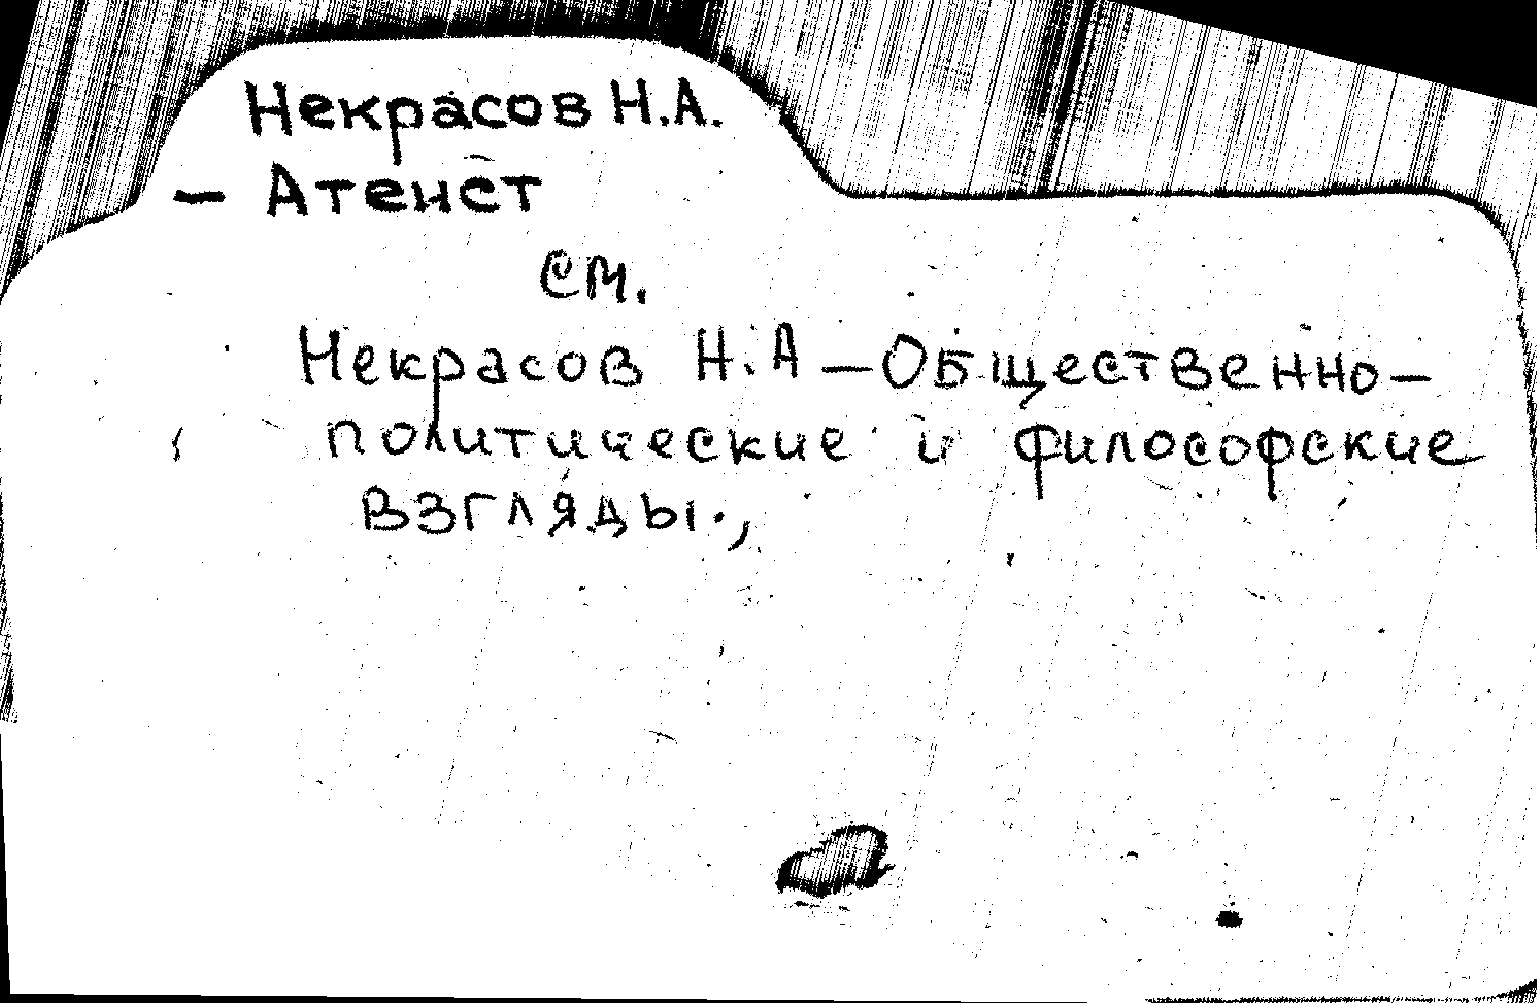 Некрасов Н.А.
— Атеист
см.
Некрасов Н.А — Общественно-
политические и философские
взгляды.,